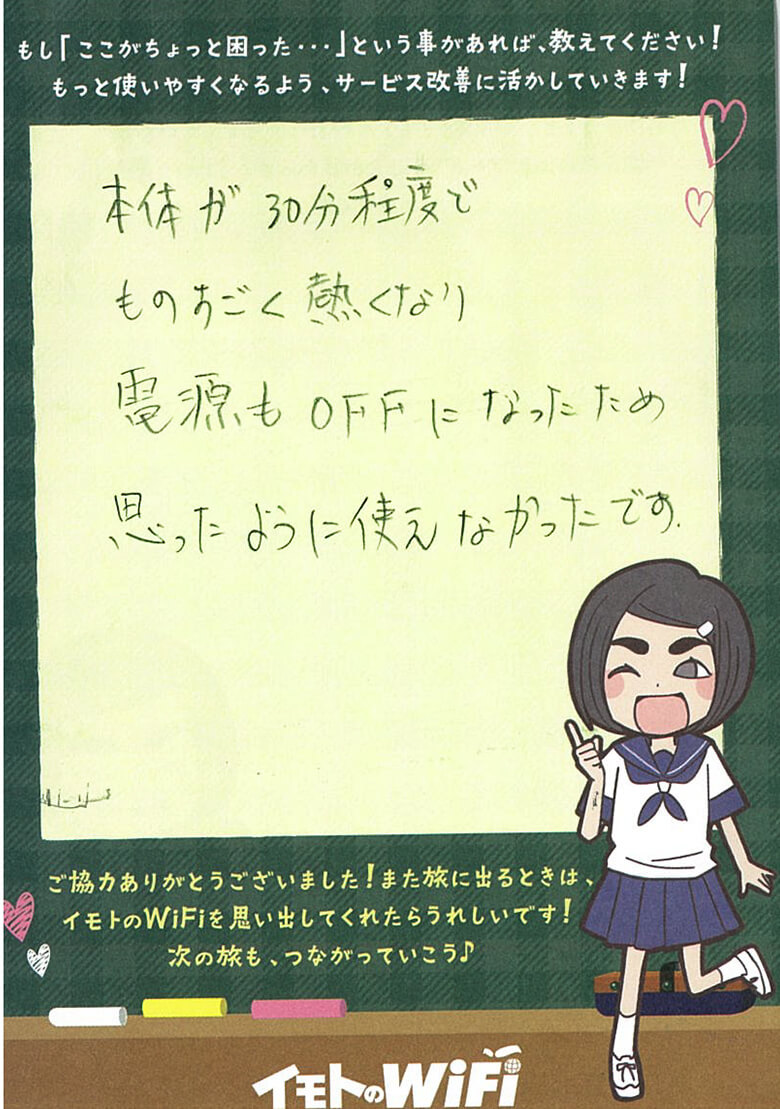 もし「ここがちょっと困った・・・」という事があれば、教えてください！
もっと使いやすくなるよう、サービス改善に活かしていきます！
本体が30分程度で
ものすごく熱くなり
電源もOFFになったため
思ったように使えなかったです.
ご協力ありがとうございました！また旅に出るときは、
イモトのWiFiを思い出してくれたらうれしいです！
次の旅も、つながっていこう♪
イモトのWiFi